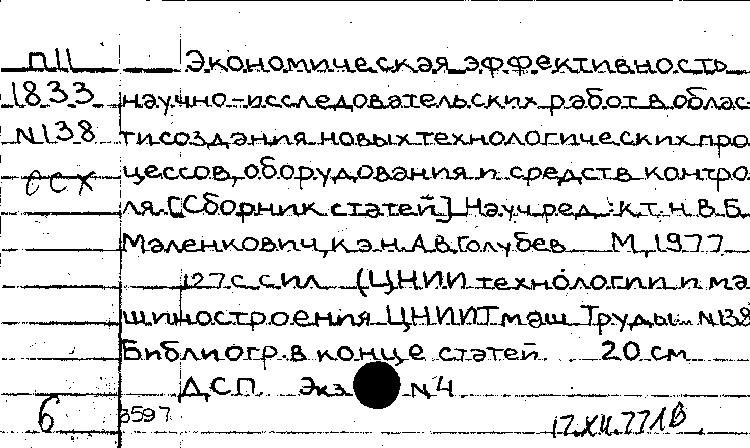 П11 Экономическая эффективность
1833 научно-исследовательских работ в облас
N138 ти создания новых технологических про
ССХ цессов, оборудования и средств контро
ля. [Сборник статей] Науч. ред.: к.т.н. В.Б.
Маленкович, к.э.н. А.В. Голубев М, 1977
127 с. с ил. (ЦНИИ технологии и ма
шиностроения ЦНИИТмаш. Труды. N138
Библиогр. в конце статей. 20 см
Д.С.П. Экз N4
6 3597 17.XII.77